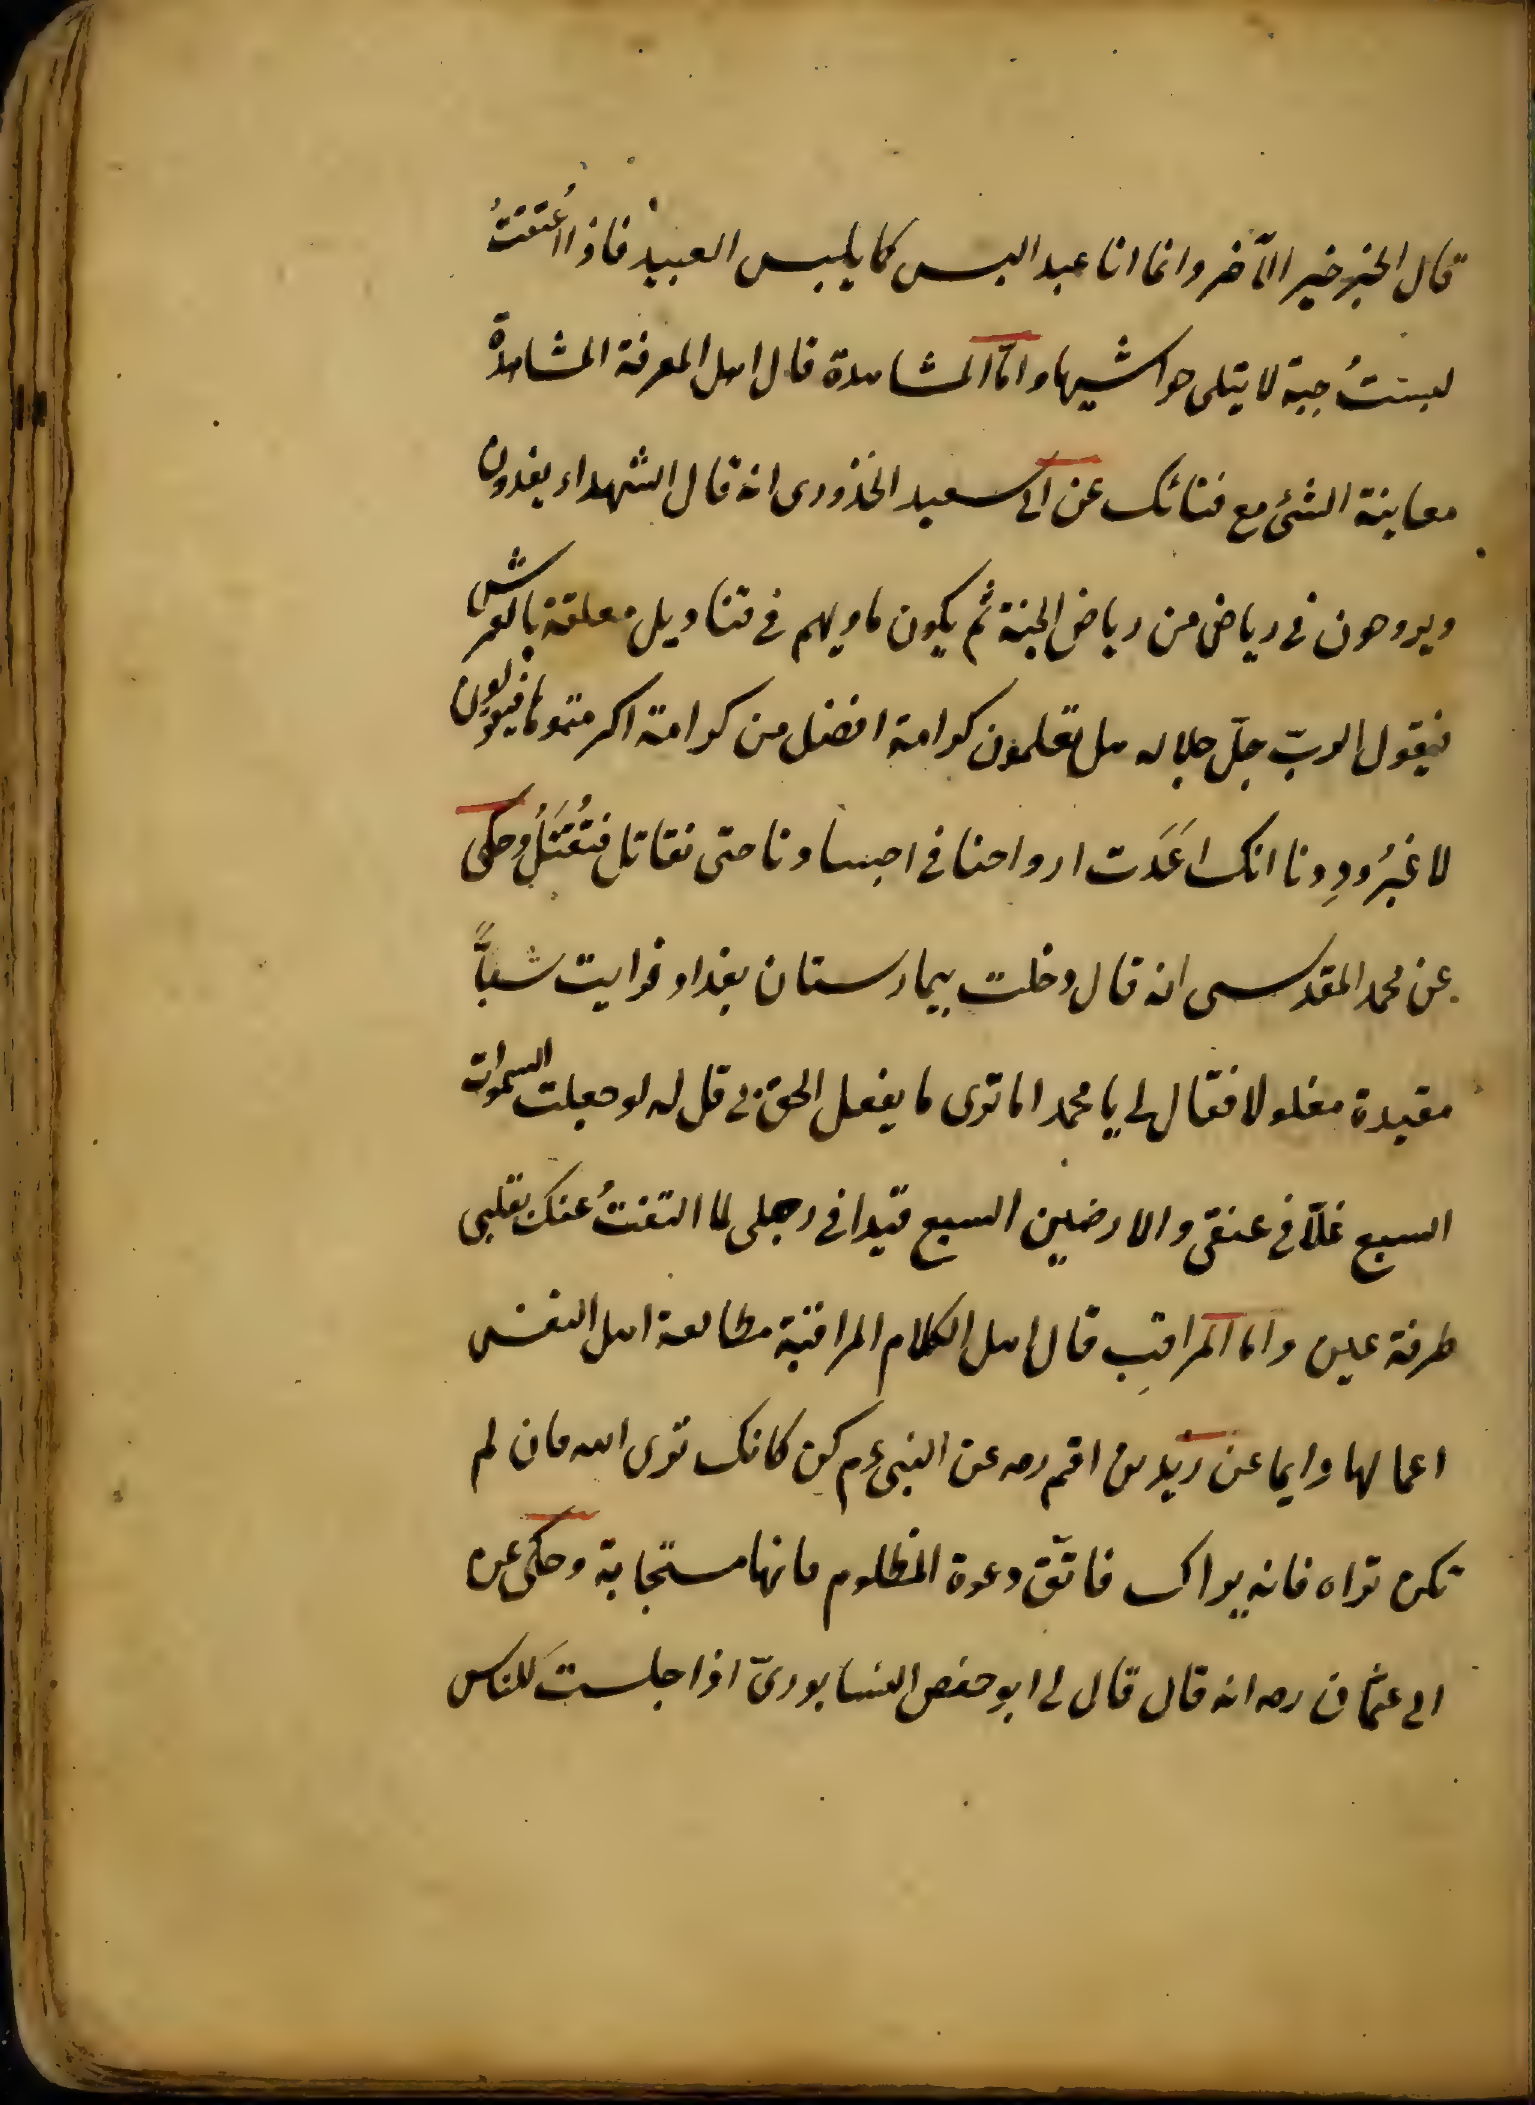 قال الخير خير الآخر وانما انا عبد البس كما يلبس العبيد فاذا اُعتقتُ
لبستُ جبة لا يبلى حواشيها وامّا المشاهدة قال اهل المعرفة المشاهدة
معاينة الشئ مع فنائك عن ابى سعيد الخذورى انه قال الشهداء يغدون
ويروحون فى رياض من رياض الجنة ثم يكون ماويهم فى قناديل معلقة بالعرش
فيقول الربّ جلّ جلاله هل تعلمون كرامة افضل من كرامة اكرمتموها فيقولون
لا غيرُ وددنا انك اَعَدَت ارواحنا فى اجسادنا حتى نقاتل فنُقتَلُ وحكى
عن محمد المقدسى انه قال دخلت بيمارستان بغداد فرايت شباًّ
مقيدة مغلولا فقال لى يا محمد اما ترى ما يفعل الحق بى قل له لو جعلت السموات
السبع غلاّ فى عنقى والارضين السبع قيدا فى رجلى لما التفتُ عنك بقلبى
طرفة عين واما المراقب قال اهل الكلام المراقبة مطالعة اهل النفس
اعمالها وايما عن زيد بن اقم رضه عن النبى عم كن كانك ترى الله فان لم
تكن تراه فانه يراك فاتّق دعوة المظلوم فانها مستجابة وحكى عن
ابى عثمان رحه انه قال قال لى ابو حفص النسابورىّ اذا جلستَ للناس